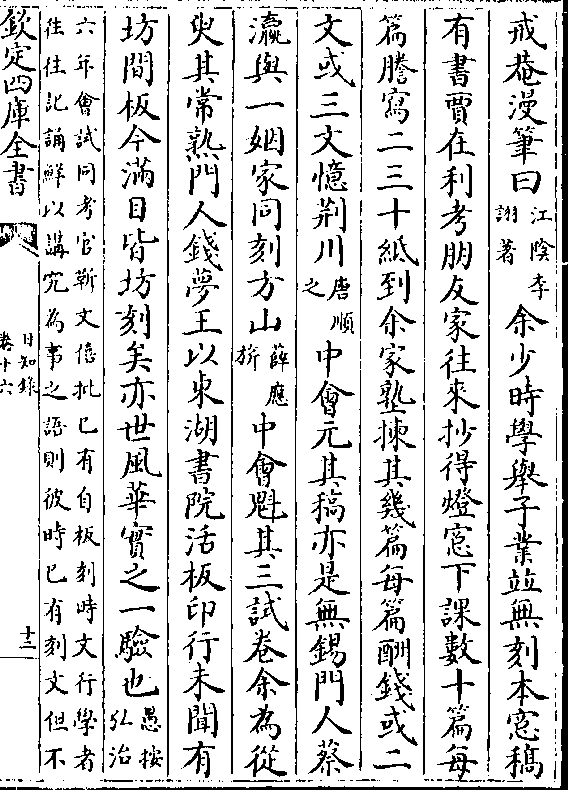 戒菴漫筆曰江陰李詡著余少時學舉子業並無刻本窓稿
有書賈在利考朋友家往來抄得燈窓下課數十篇每
篇謄寫二三十紙到余家塾揀其幾篇每篇酬錢或二
文或三文憶荆川唐順之中會元其稿亦是無錫門人蔡
瀛與一姻家同刻方山薛應旂中會魁其三試卷余為從
臾其常熟門人錢夢玉以東湖書院活板印行未聞有
坊間板今滿目皆坊刻矣亦世風華實之一驗也愚按弘治
六年會試同考官靳文僖批已有自板刻時文行學者
往往記誦鮮以講究為事之語則彼時已有刻文但不
欽定四庫全書
日知錄
卷十六
十二